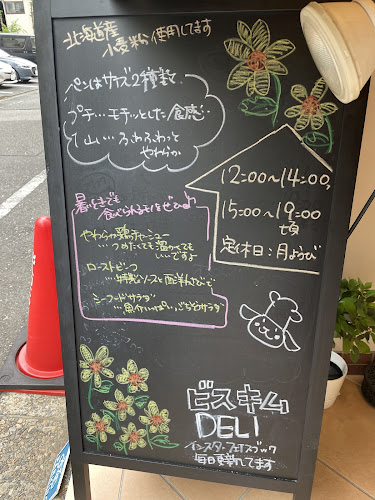 北海道産
小麦粉使用してます
パンはサイズ2種類で
プチ…モチッとした食感
1山…ふわふわっと
やわらか
12:00~14:00,
15:00~19:00
頃
定休日:月ようび
暑い日でも
食べられるモノをぜひ♪
やわらか鶏チャーシュー
つめたくても温かくても
いいですよ
ローストビーフ
…特製ソースと西洋わさびで
シーフードサラダ
…具がいっぱい、ごちそうサラダ
ビスキム
DELI
インスター フェイスブック
毎日更新してます